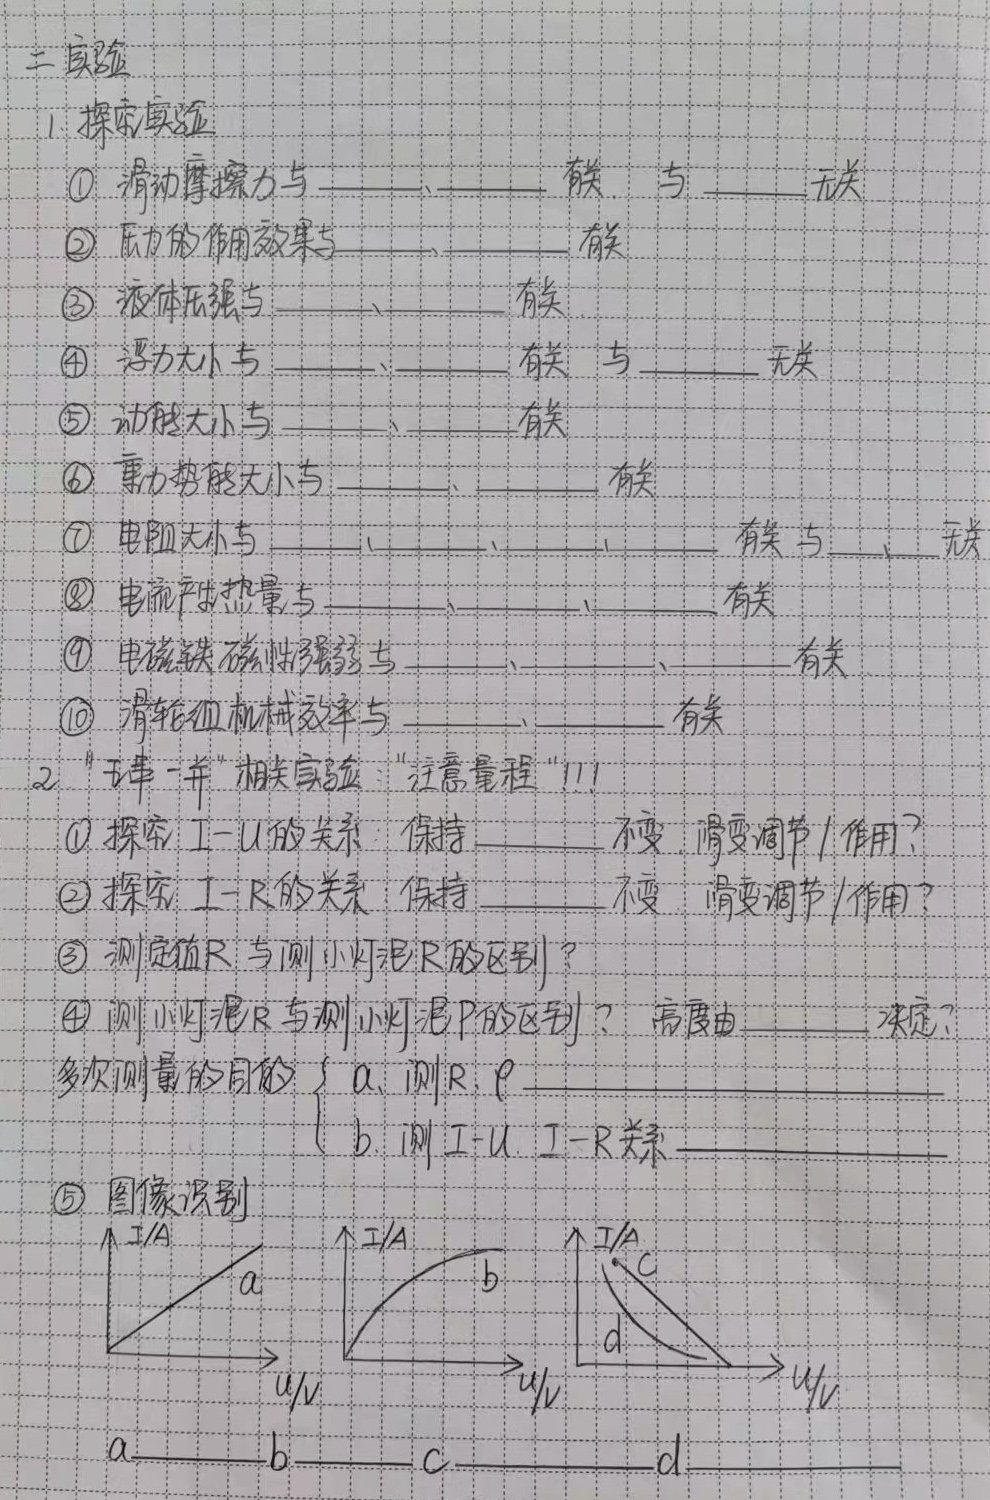 二 实验
1. 探究实验
① 滑动摩擦力与______、______有关. 与______无关
② 压力的作用效果与______、______有关
③ 液体压强与______、______有关
④ 浮力大小与______、______有关 与______无关
⑤ 动能大小与______、______有关
⑥ 重力势能大小与______、______有关
⑦ 电阻大小与______、______、______、______有关 与____、____无关
⑧ 电流产生热量与______、______、______有关
⑨ 电磁铁磁性强弱与______、______、______有关
⑩ 滑轮组机械效率与______、______有关
2. "五串一并"相关实验:"注意量程"!!!
① 探究 I-U的关系: 保持______不变. 滑变调节/作用?
② 探究 I-R的关系 保持______不变 滑变调节/作用?
③ 测定值R 与测小灯泡R的区别?
④ 测小灯泡R与测小灯泡P的区别? 亮度由______决定?
多次测量的目的 { a. 测R、ρ______
b. 测I-U. I-R关系______
⑤ 图像识别
I/A a U/V
I/A b U/V
I/A c d U/V
a______b______c______d______